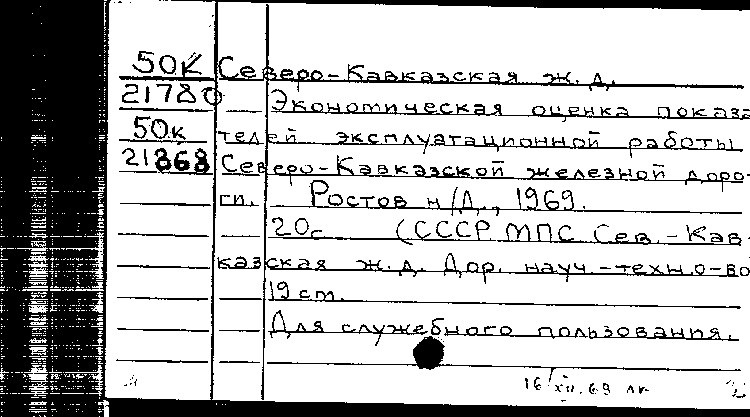 50К Северо-Кавказская ж. д.
21780 Экономическая оценка показа
50к телей эксплуатационной работы
21868 Северо-Кавказской железной доро-
ги. Ростов н/Д., 1969.
20с (СССР МПС Сев.-Кав-
казская ж.д. Дор. науч.-техн.о-во
19 см.
Для служебного пользования.
16/XII.69